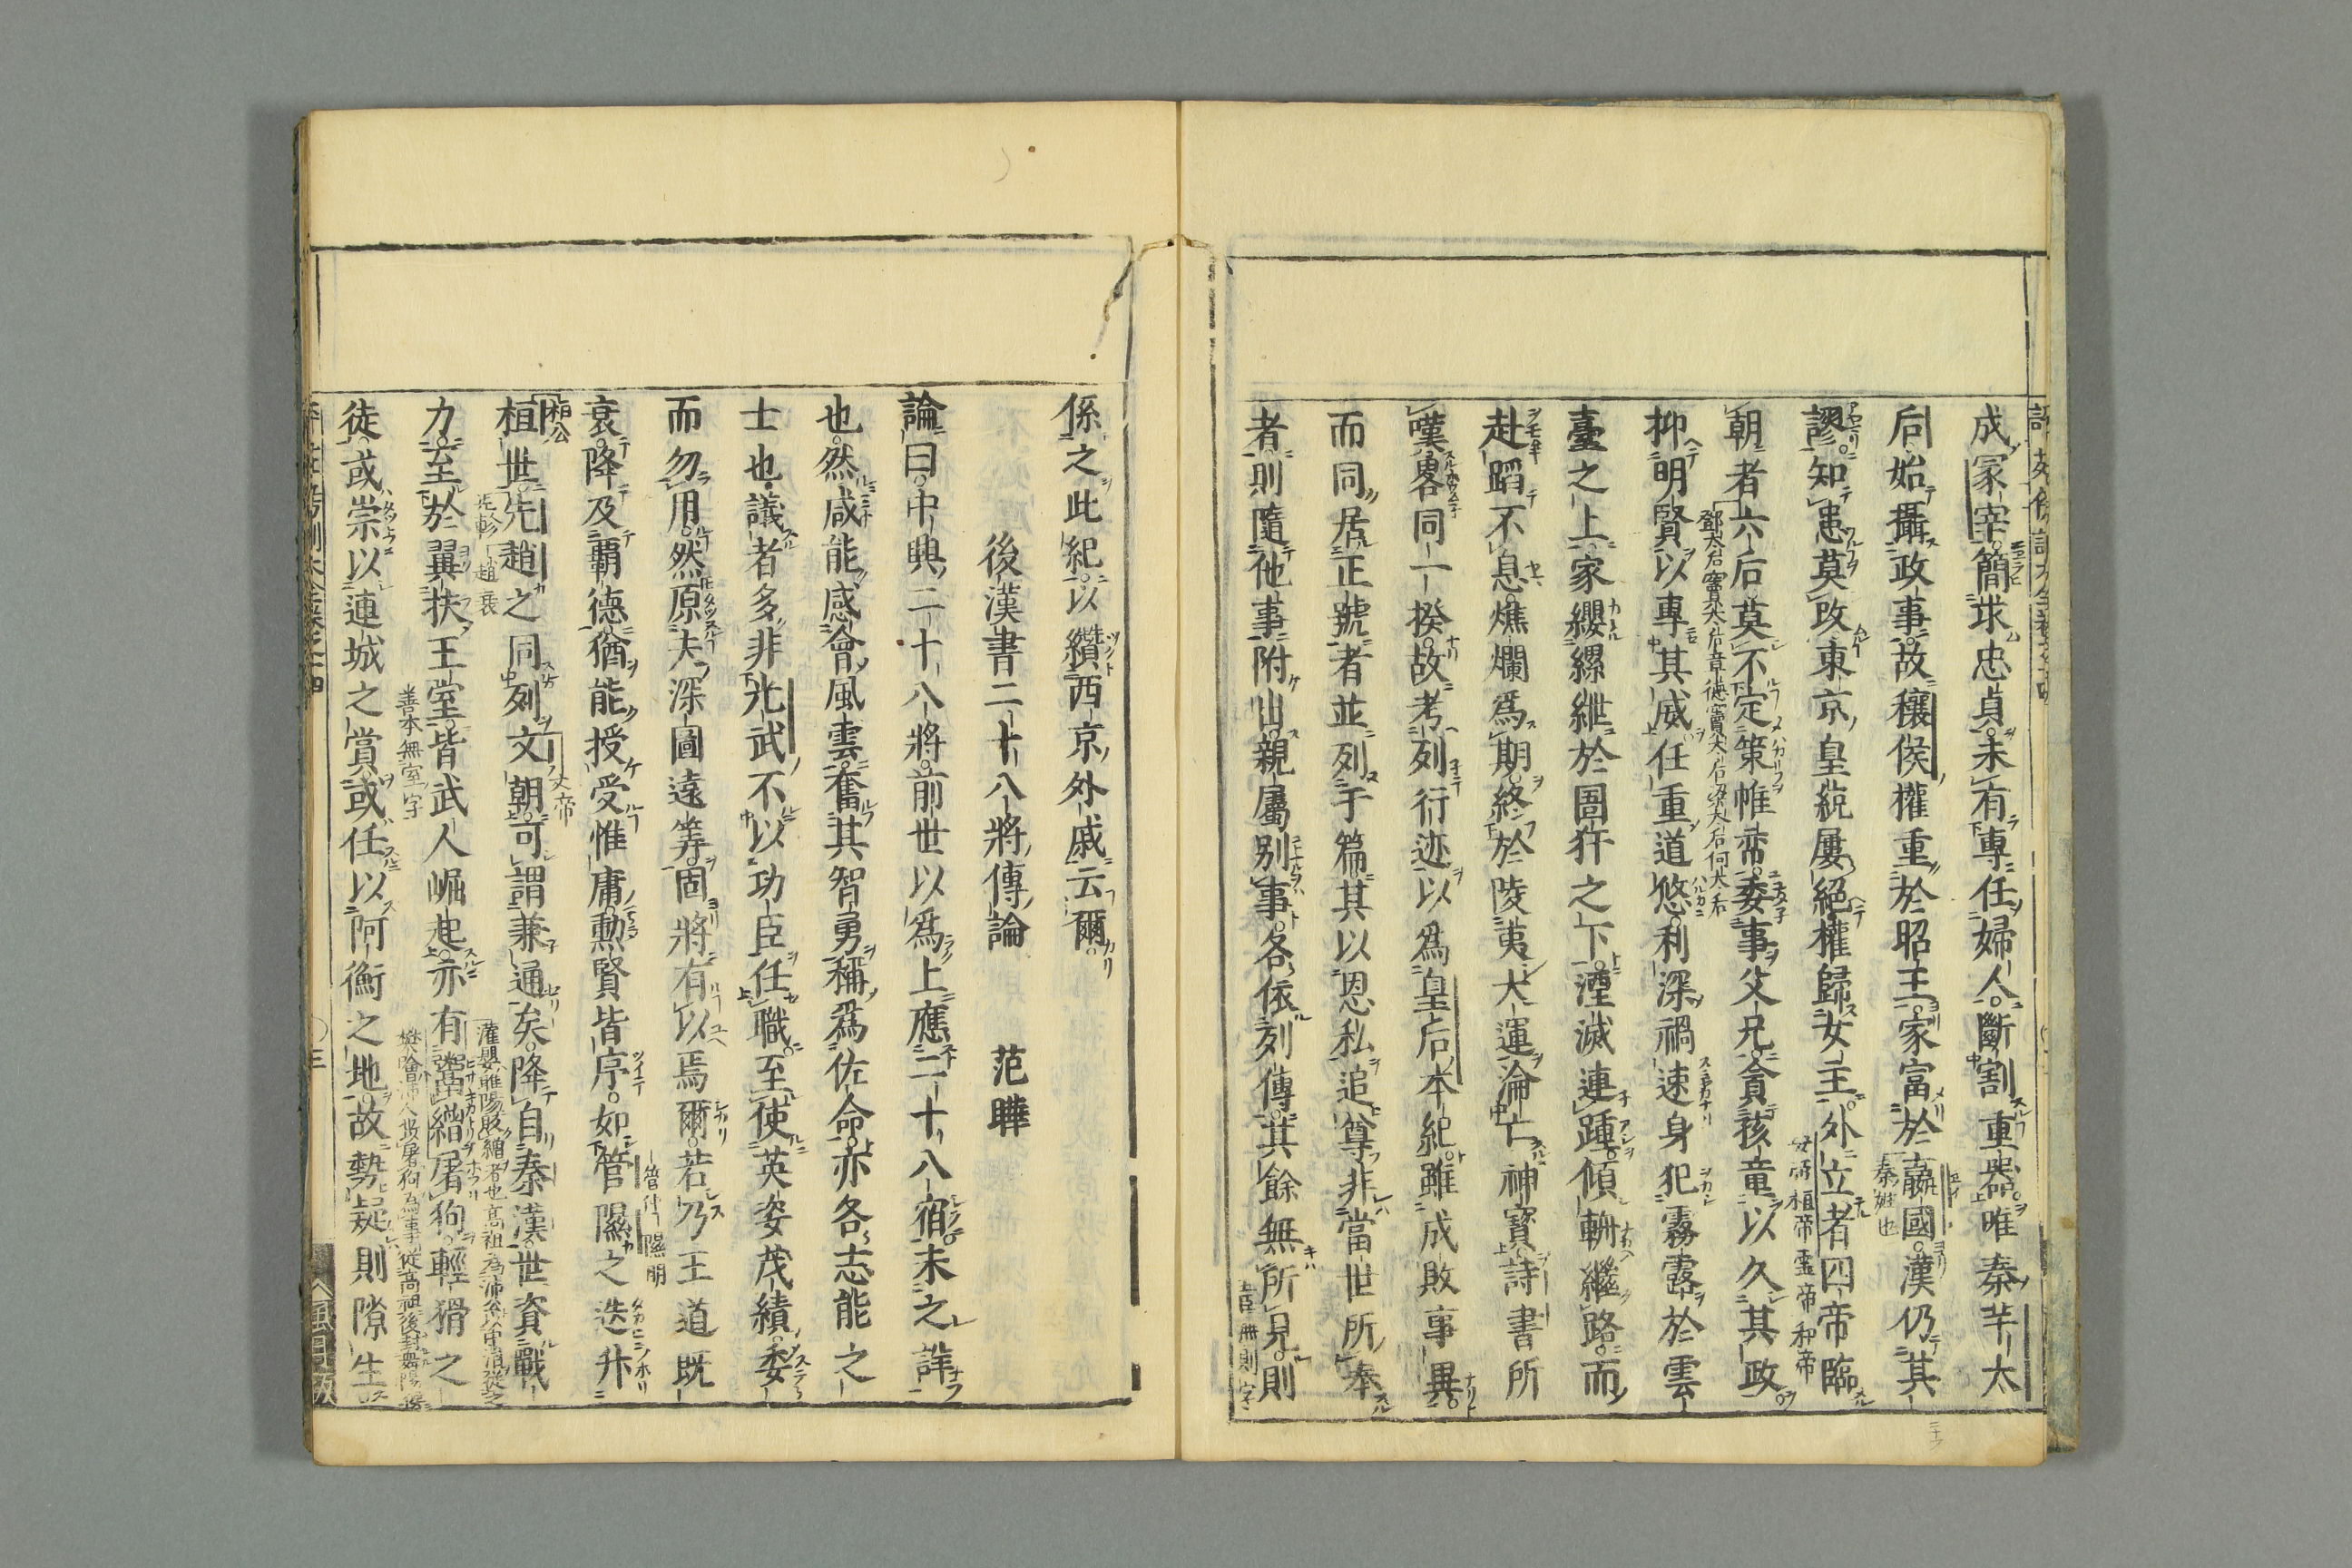 成冢宰簡求忠貞未有專任婦人斷割重器唯秦芊太
后始攝政事故穰侯權重於昭王家富於嬴國漢仍其
秦姓也
謬知患莫改東京皇統屢絕權歸女主外立者四帝臨
安帝桓帝靈帝和帝
朝者六后莫不定策帷帟委事父兄貪孩童以久其政
鄧太后竇太后章德竇太后梁太后何太后
抑明賢以專其威任重道悠利深禍速身犯霧露於雲
臺之上家纓縲紲於圄犴之下湮滅連踵傾輈繼路而
赴蹈不息燋爛爲期終於陵夷大運淪亡神寶詩書所
嘆畧同一揆故考列行迹以爲皇后本紀雖成敗事異
而同居正號者並列于篇其以恩私追尊非當世所奉
者則隨他事附出親屬別事各依列傳其餘無所見則
係之此紀以纘西京外戚云爾
後漢書二十八將傳論　范曄
論曰中興二十八將前世以爲上應二十八宿未之詳
也然咸能感會風雲奮其智勇稱爲佐命亦各志能之
士也議者多非光武不以功臣任職至使英姿茂績委
而勿用然原夫深圖遠筭固將有以焉爾若乃王道既
管仲　隰朋
衰降及覇德猶能授受惟庸勳賢皆序如管隰之迭升
桓公
桓世先趙之同列文朝可謂兼通矣降自秦漢世資戰
文帝
先軫　趙衰
灌嬰睢陽販繒者也高祖為沛公以中涓從之
力至於翼扶王室皆武人崛起亦有鬻繒屠狗輕猾之
善本無室字
徒或崇以連城之賞或任以阿衡之地故勢疑則隙生
三